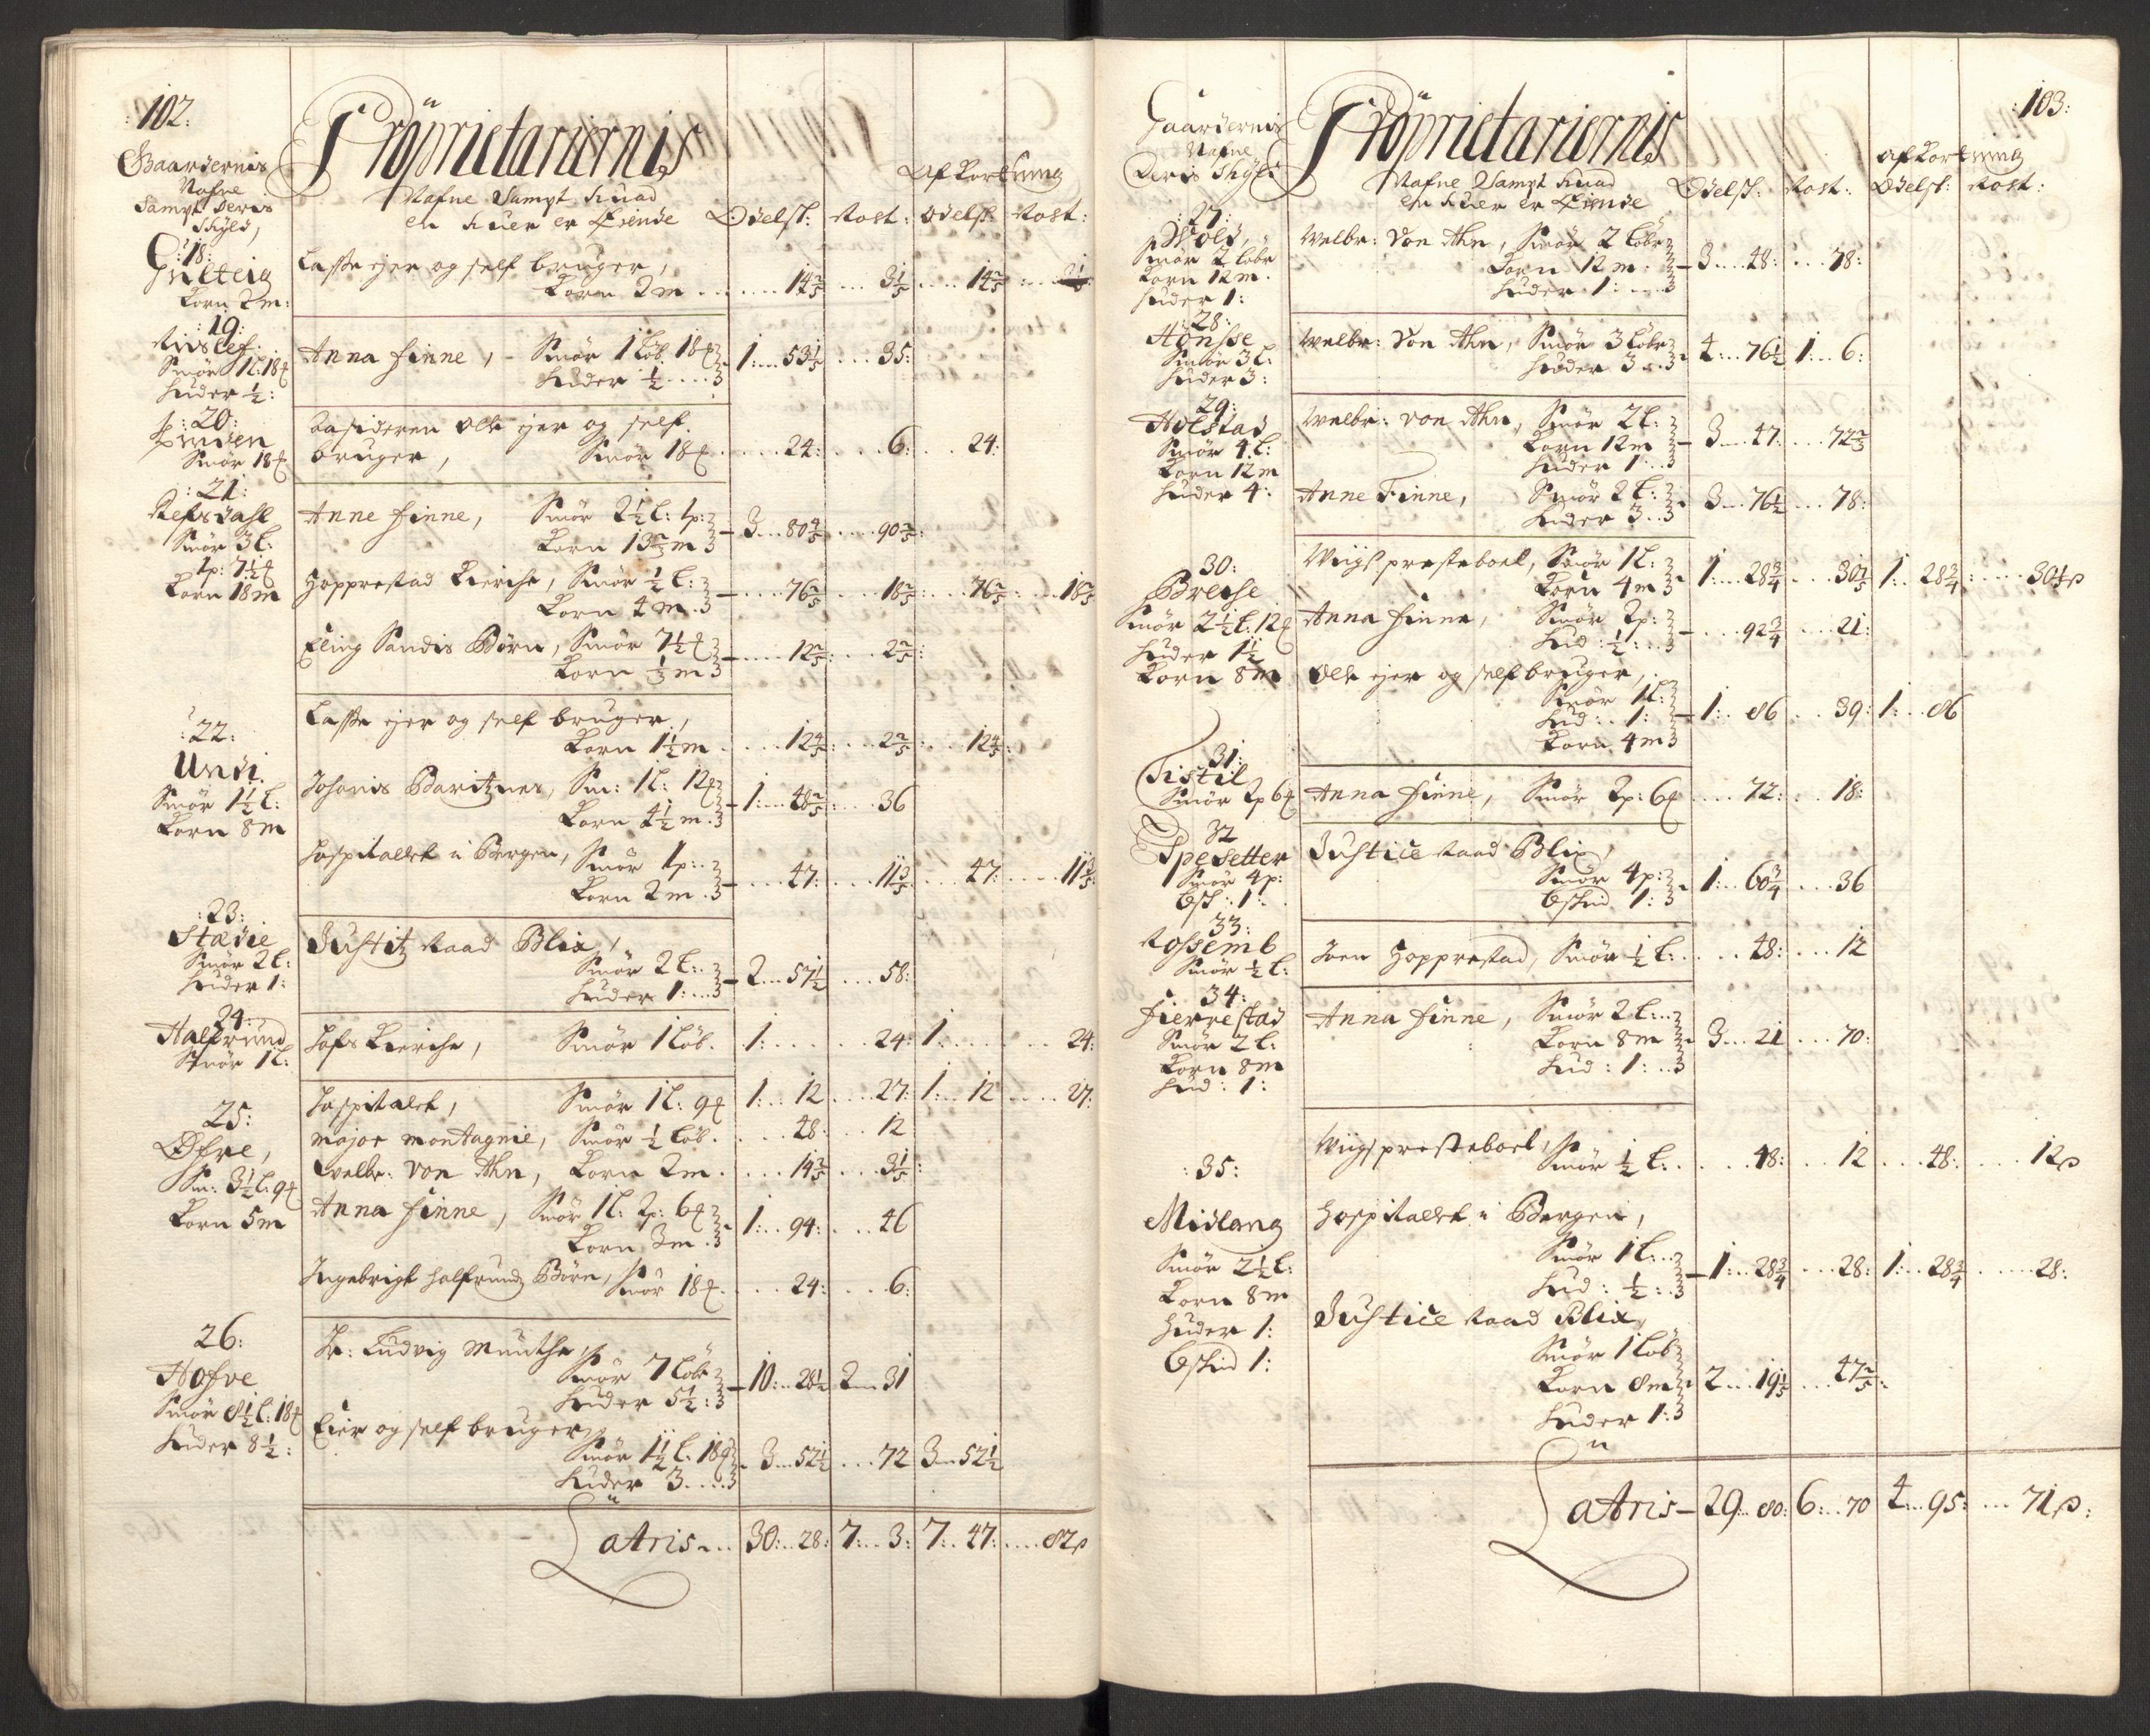 :102:
Gaardernis
Nafne
Sampt deris
Skyld,
Proprietariernis
Nafne Sampt huad
en huer er Eiende
Afkortning
Odelsk: Rost: Odelsk: Rost:
:18:
Hulteig
Korn 2m:
Lasse ejer og self bruger,
Korn 2m ... 14 2/5 ... 3 1/5 ... 14 2/5 ... 3 1/5
:19:
Rivslef:
Smör 1l: 18
Huder ½:
Anna finne, - Smör 1 löb 18
Huder ½ ... 1: ... 53 1/5 ... 35:
:20:
Linden
Smör 18
Ole ejer og self
bruger, Smör 18 ... 24: ... 6: ... 24:
:21:
Refsdahl
Smör 3l:
1p: 7½
Korn 18m
Anne finne, Smör 2½l: 1p:
Korn 13 2/3 m 3 ... 80 4/5 ... 90 2/5:
Hopprestad Kierche, Smör ½l:
Korn 4m. ... 76 2/5 ... 18 2/5 ... 76 2/5 ... 18 2/5
Elling Sandis Börn, Smör 7½
Korn ⅓m ... 12 2/5 ... 2 2/5:
:22:
Undi
Smör 1½l:
Korn 8m
Lasse ejer og self bruger,
Korn 1½m ... 12 4/5 ... 2 2/5 ... 12 4/5:
Johanis Baritznes, Sm: 1l: 12
Korn 4½m. 1: ... 48 2/5 ... 36
Hospitallet i Bergen, Smör 1p:
Korn 2m. ... 47: ... 11 3/5 ... 47: ... 11 3/5:
:23:
Stædie
Smör 2l:
Huder 1:
Justitz Raad Blix,
Smör 2l:
Huder 1: ... 2 ... 57½ ... 58:
24:
Halfrund
Smör 1l:
Hofs Kierche, Smör 1 löb. 1: ... 24: 1: ... 24:
25:
Öfre,
Sm: 3½l: 9
Korn 5m
Hospitalet, Smör 1l: 9 1: ... 12 ... 27: 1: ... 12 ... 27:
Major Montagnie, Smör ½ löb. ... 48: ... 12
Welbr: von Ahn, Korn 2m ... 14 2/5 ... 3 1/5:
Anna finne, Smör 1l: 2p: 6
Korn 3m. 1: ... 94: ... 46
Ingebrigt halfrunds Börn, Smör 18 ... 24: ... 6:
26:
Hofve
Smör 8½l: 18
Huder 8½:
Hr: Ludvig Munthe,
Smör 7 löbr
Huder 5½: 10: ... 28½ 2 ... 31
Eier og self bruger,
Smör 1½l: 18
Huder 3 ... 3 ... 52½ ... 72 3 ... 52½
Latris ... 30: .. 28: 7: .. 3: 7: .. 47: ... 82
:103:
Gaardernis
Nafne
Deris Skyld
Proprietariernis
Nafne Sampt huad
en huer er Eiende
Afkortning
Odelsk: Rost: Odelsk: Rost:
:27:
Wold,
Smör 2 löbr
Korn 12m.
Huder 1:
Welbr: Von Ahn, Smör 2 löbr
Korn 12m:
Huder 1: ... 3 ... 48: ... 78:
:28:
Hönsse
Smör 3l:
Huder 3:
Welbr: Von Ahn, Smör 3 löbr
Huder 3 ... 4: .. 76½ 1: .. 6:
29:
Holstad
Smör 4l:
Korn 12m
Huder 4:
Welbr: von Ahn, Smör 2l:
Korn 12m
Huder 1: ... 3 ... 47: ... 72 2/3
Anne Finne, Smör 2l:
Huder 3 .. 3 ... 76½ ... 78:
30:
Breche
Smör 2½l: 12
Huder 1½
Korn 8m
Wiigs presteboel, Smör 1l:
Korn 4m 1: ... 28¾ ... 30 1/5 1: .. 28¾ ... 30 1/5
Anna finne, Smör 2p:
Hud: ½: ... 92¾ ... 21:
Ole ejer og self bruger,
Smör 1l:
Hud: 1:
Korn 4m 1: .. 86 ... 39: 1: .. 86
31:
Tistil
Smör 2p 6
Anna finne, Smör 2p: 6 ... 72: ... 18:
32
Spesetter
Smör 4p:
Justice Raad Blix,
Smör 4p:
1: 1: ... 60¾ ... 36
33:
Rossemb
Smör ½l:
Joen Hopprestad, Smör ½l: ... 48: ... 12
34:
Fierrestad
Smör 2l:
Korn 8m
Hud: 1:
Anna finne, Smör 2l:
Korn 8m
Hud: 1: .. 3 ... 21 ... 70:
:35:
Midlang
Smör 2½l:
Korn 8m
Huder 1:
Wiigs presteboel,
Smör ½l: ... 48: ... 12 ... 48: ... 12
Hospitallet i Bergen,
Smör 1l:
Hud: ½: 1: ... 28¾ ... 28: 1: .. 28¾ ... 28:
Justice Raad Blix,
Smör 1 löb
Korn 8m
Huder 1: 2 ... 19 1/5 ... 47 2/5:
Latris - 29 .. 80: 6: .. 70 4 ... 95: ... 71